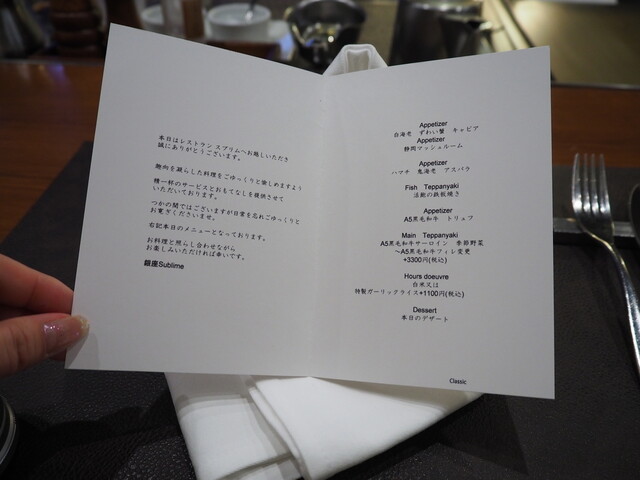 本日はレストラン スブリムへお越しいただき
誠にありがとうございます。
趣向を凝らした料理をごゆっくりと愉しめますよう
精一杯のサービスとおもてなしを提供させて
いただいております。
つかの間ではございますが日常を忘れごゆっくりと
お寛ぎくださいませ。
右記本日のメニューとなっております。
お料理と照らし合わせながら
お楽しみいただければ幸いです。
銀座Sublime
Appetizer
白海老 ずわい蟹 キャビア
Appetizer
静岡マッシュルーム
Appetizer
ハマチ 鬼海老 アスパラ
Fish Teppanyaki
活鮑の鉄板焼き
Appetizer
A5黒毛和牛 トリュフ
Main Teppanyaki
A5黒毛和牛サーロイン 季節野菜
〜A5黒毛和牛フィレ変更
+3300円(税込)
Hours doeuvre
白米又は
特製ガーリックライス+1100円(税込)
Dessert
本日のデザート
Classic